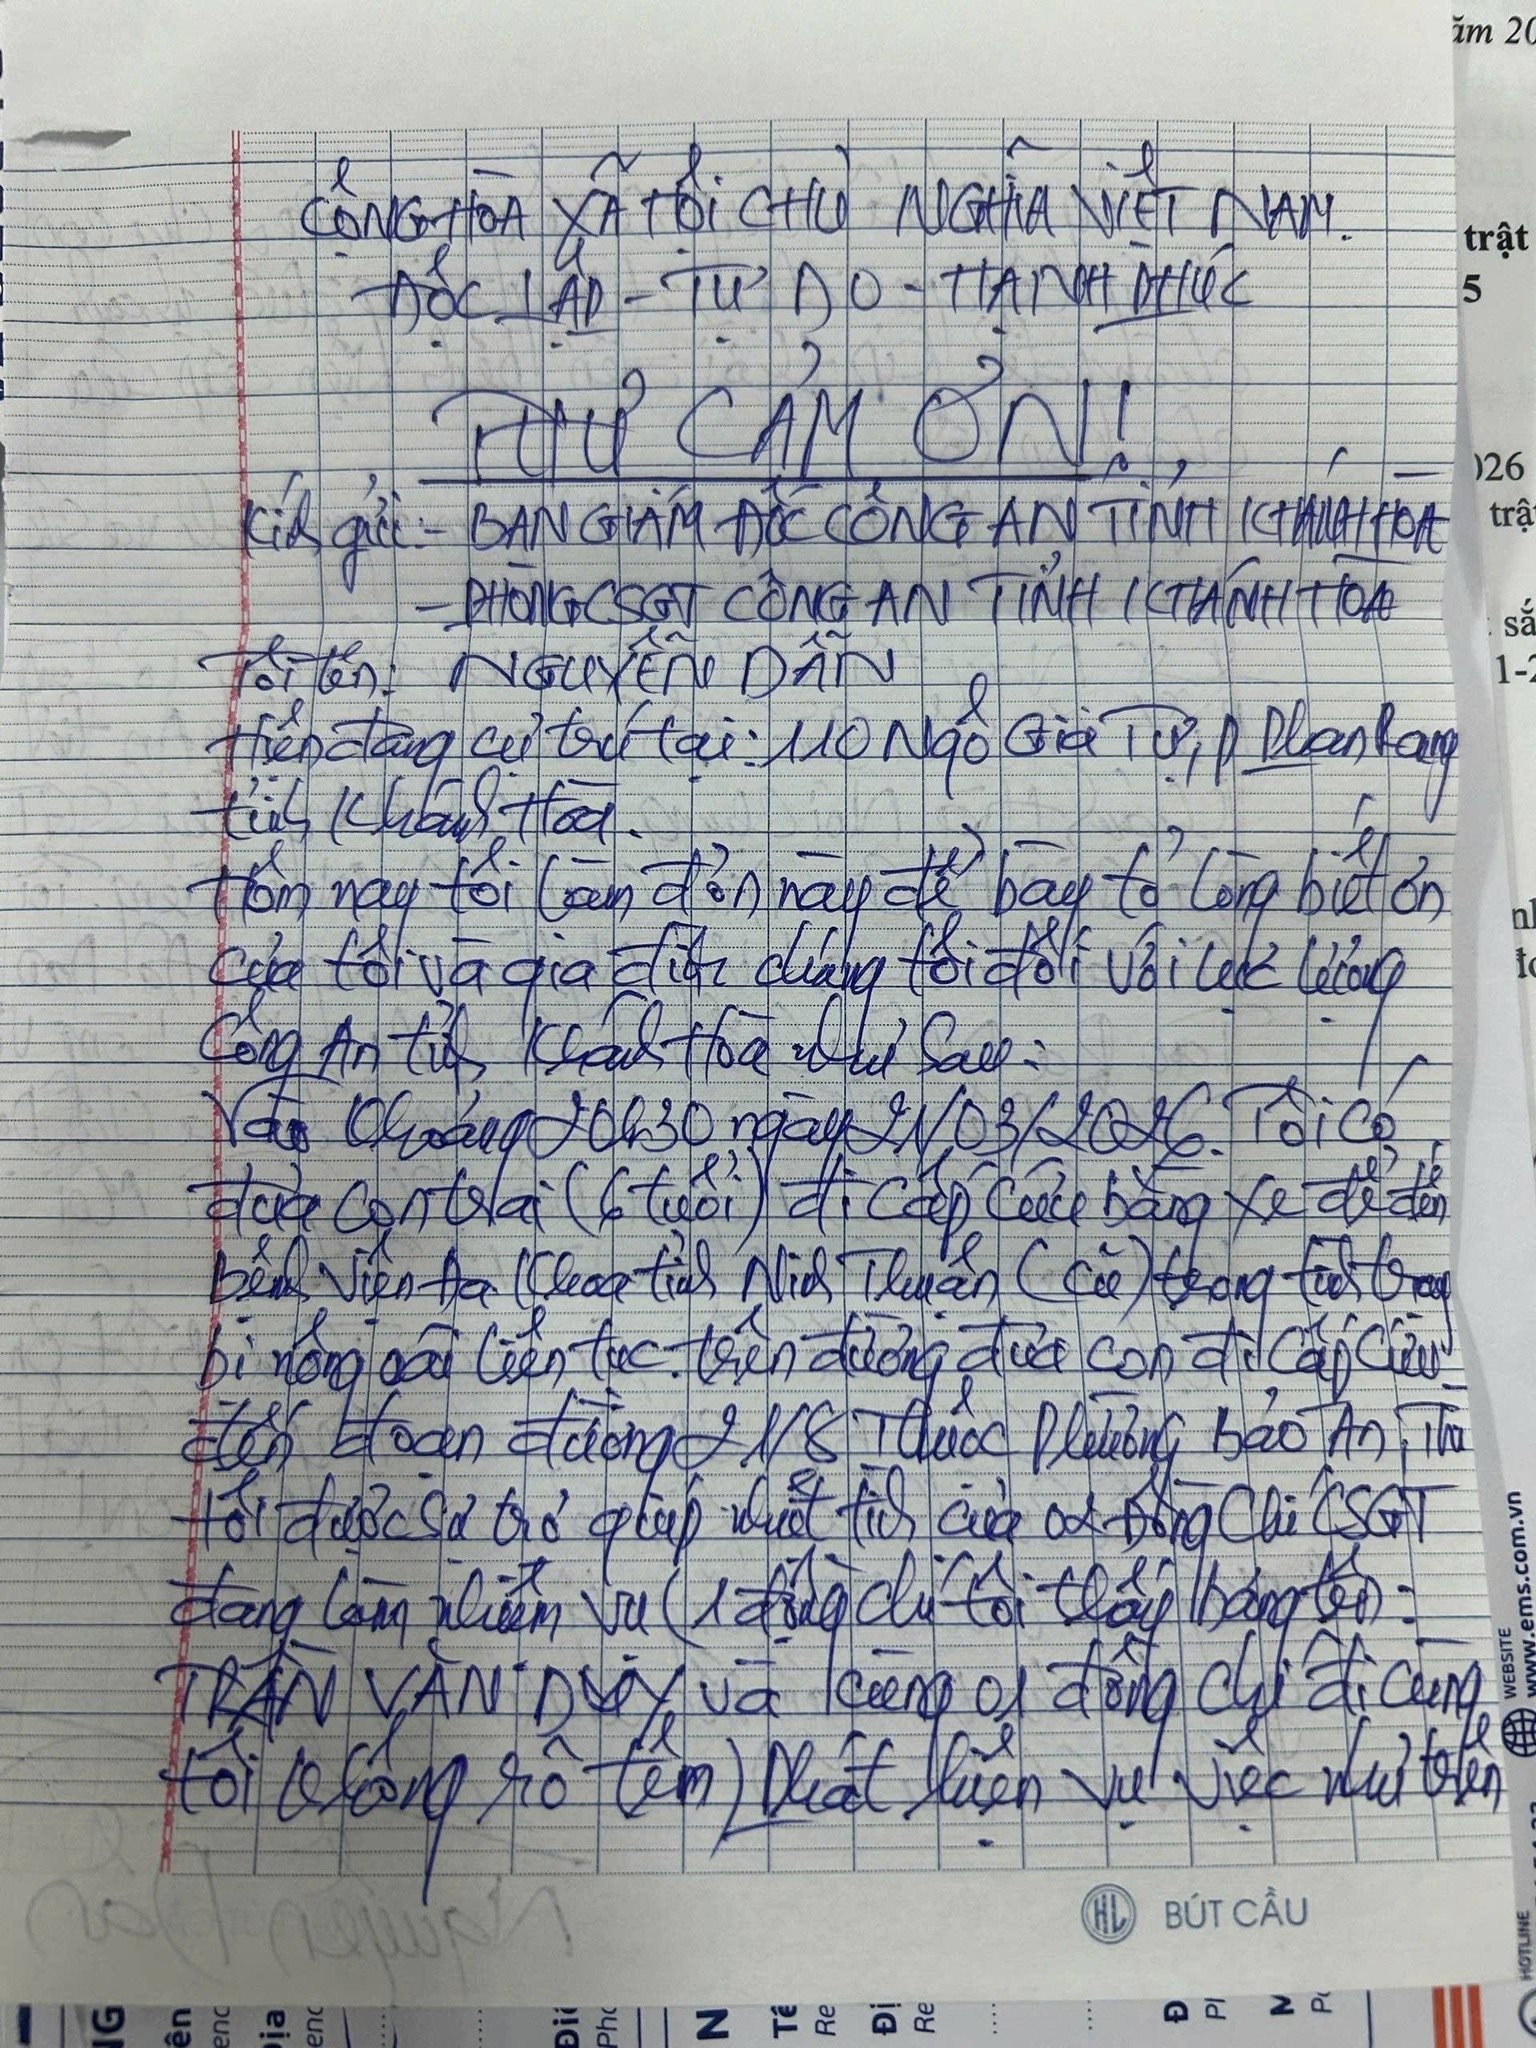 CỘNG HÒA XÃ HỘI CHỦ NGHĨA VIỆT NAM.
ĐỘC LẬP - TỰ DO - HẠNH PHÚC
THƯ CẢM ƠN!
Kính gửi: - BAN GIÁM ĐỐC CÔNG AN TỈNH KHÁNH HÒA
- PHÒNG CSGT CÔNG AN TỈNH KHÁNH HÒA
Tôi tên: NGUYỄN DẪN
Hiện đang cư trú tại: 110 Ngô Gia Tự, P Phan Rang
tỉnh Khánh Hòa.
Hôm nay tôi làm đơn này để bày tỏ lòng biết ơn
của tôi và gia đình chúng tôi đối với lực lượng
Công An tỉnh Khánh Hòa như sau:
Vào khoảng 20h30 ngày 21/03/2026. Tôi có
đưa con trai (6 tuổi) đi cấp cứu bằng xe để đến
Bệnh Viện Đa Khoa tỉnh Ninh Thuận (cũ) trong tình trạng
bị nông oái liên tục. trên đường đưa con đi cấp cứu
đến đoạn đường 21/8 Thuộc Phường Bảo An, Thì
tôi được sự trợ giúp nhiệt tình của 02 Đồng Chí CSGT
đang làm nhiệm vụ (1 đồng chí tôi thấy bảng tên:
TRẦN VĂN DUY và cùng 01 đồng chí đi cùng
tôi không rõ têm) Phát hiện vụ việc như trên
BÚT CẦU
HL
ăm 20
trật
5
026
trật
sắ
1-2
WEBSITE
www.ems.com.vn
HOTLINE
NG
ên
Địa
N
Tê
Re
Đị
Re
Đ
Pl